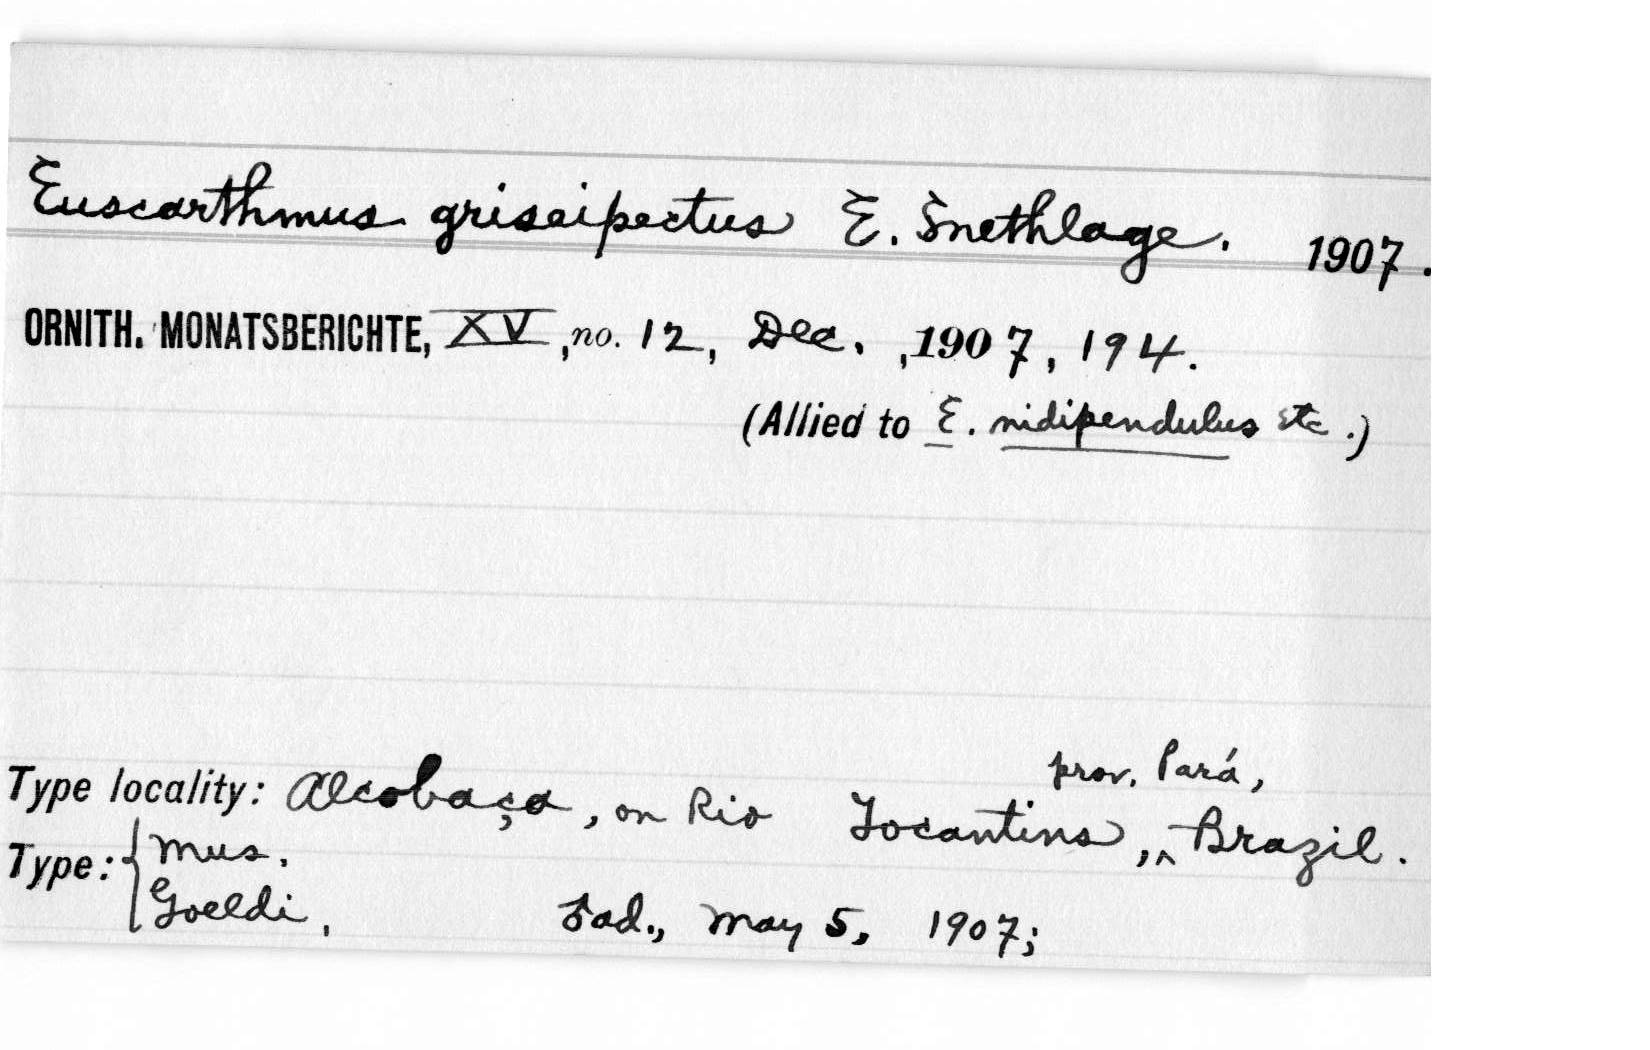 Euscarthmus griseipectus E. Snethlage. 1907.
ORNITH. MONATSBERICHTE, XV, no. 12, Dec. ,1907, 194.
(Allied to E. nidipendulus etc.)
prov. Pará,
Type locality: Alcobaça, on Rio Tocantins, ^ Brazil.
Type: { Mus.
Goeldi, ad., May 5, 1907;